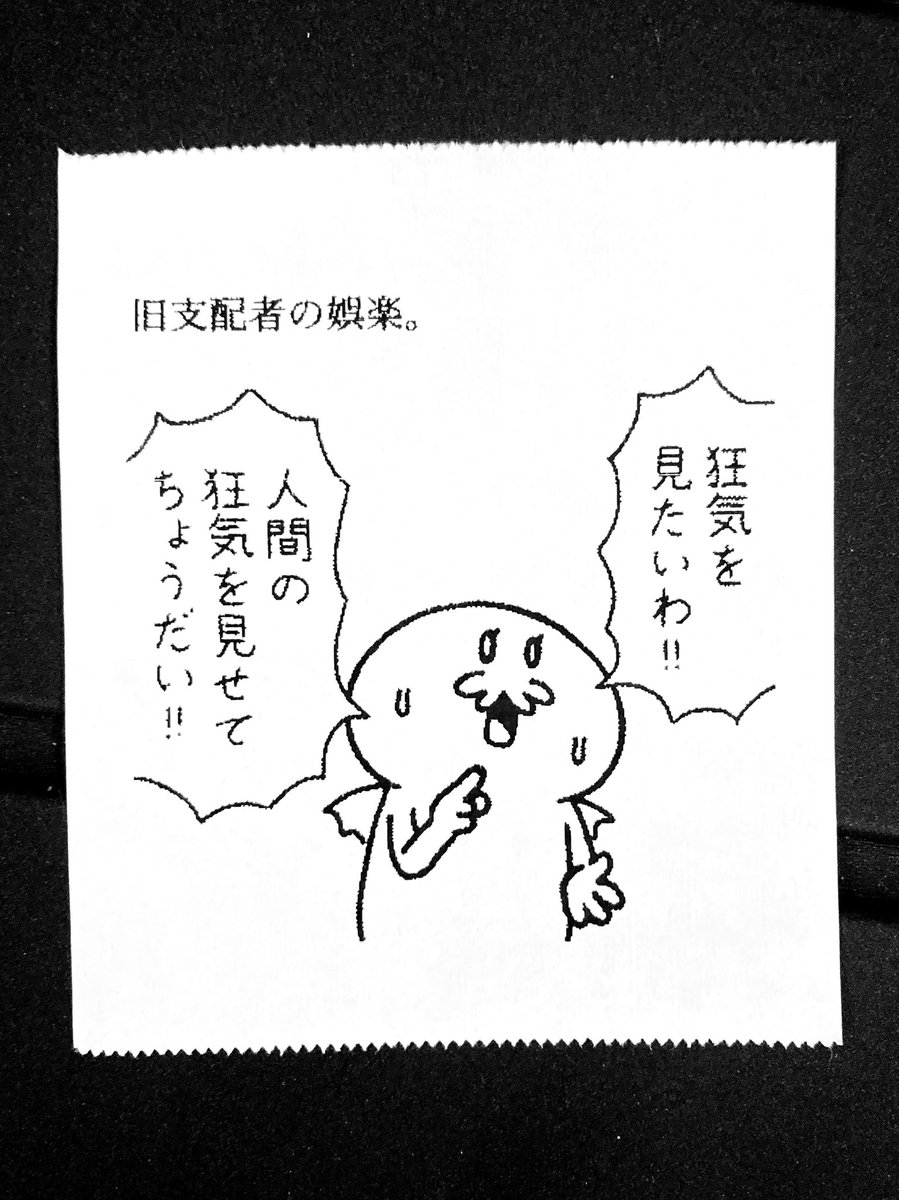 旧支配者の娯楽。
狂気を
見たいわ!!
人間の
狂気を見せて
ちょうだい!!